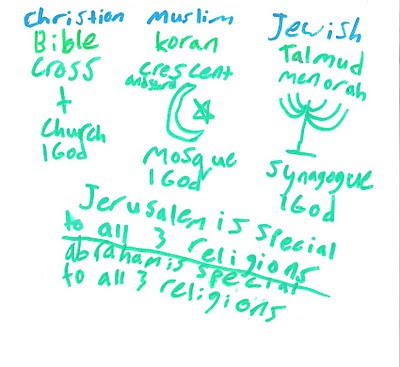 Christion
Bible
Cross
Church
1 God
Muslim
Koran
Crescent
and stard
Mosque
1 God
Jewish
Talmud
menorah
Synagogue
1 God
Jerusalem is special
to all 3 religions
abraham is special
to all 3 religions